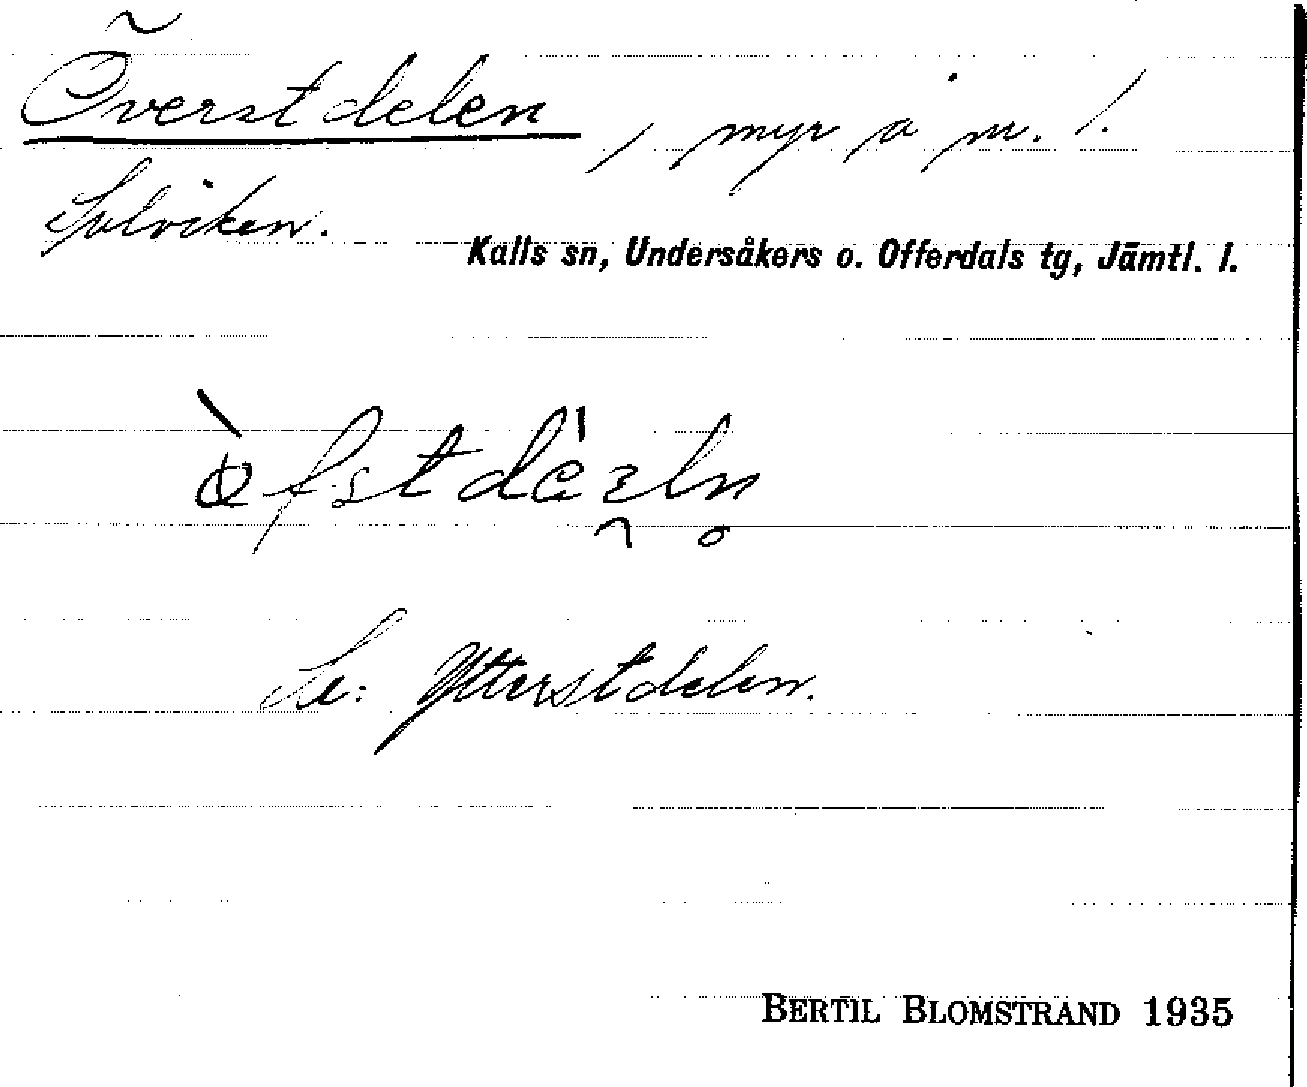 Överstdelen, myr å nr. 1.
Solviken.
Kalls sn, Undersåkers o. Offerdals tg, Jämtl. l.
Se: Ytterstdelen.
BERTIL BLOMSTRAND 1935